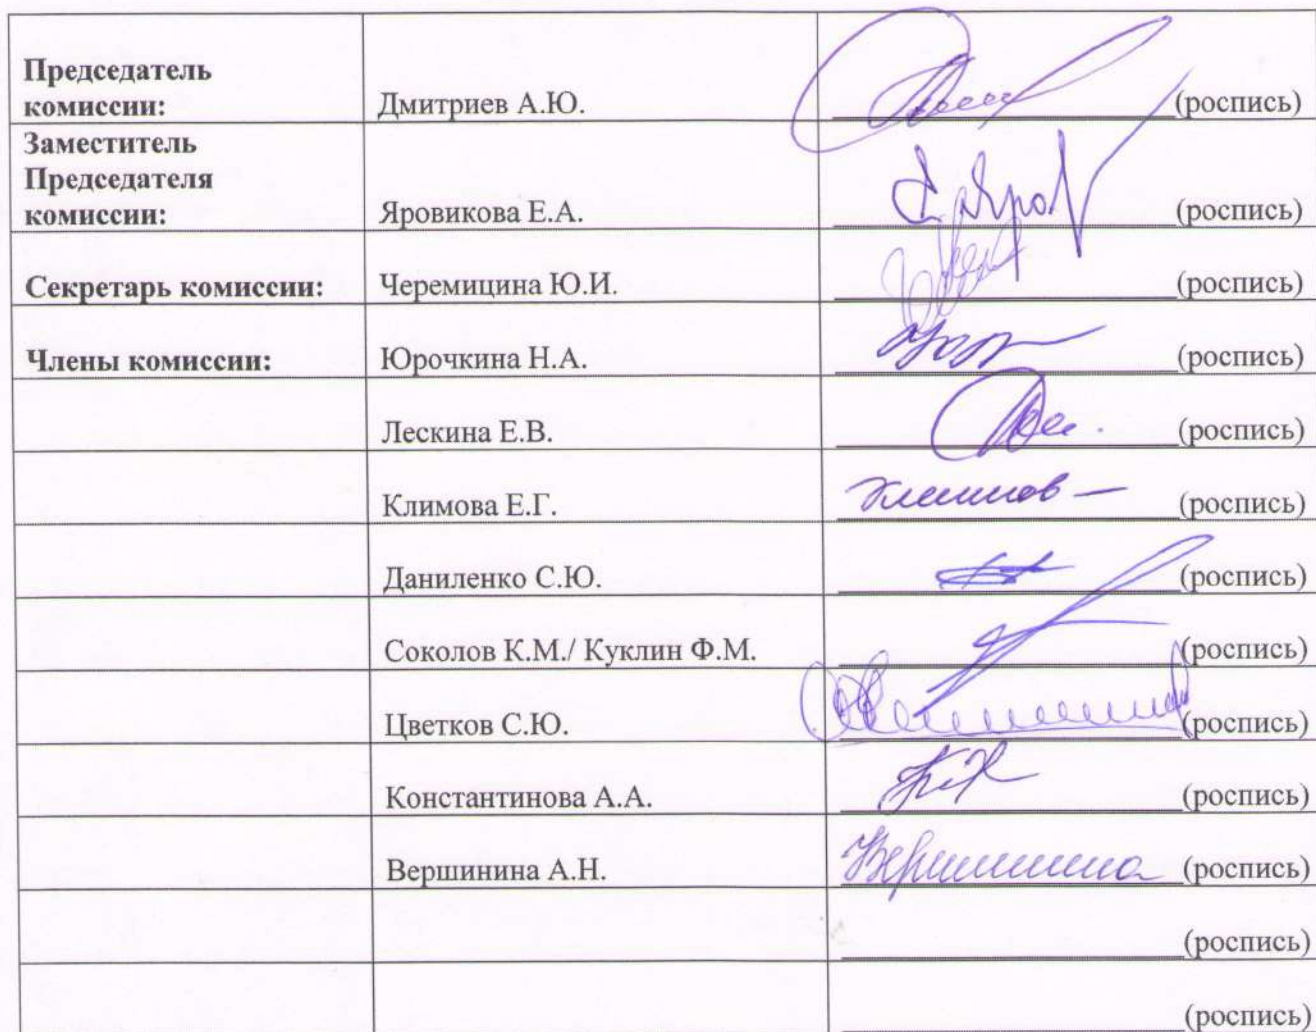 Председатель
комиссии: Дмитриев А.Ю. (роспись)
Заместитель
Председателя
комиссии: Яровикова Е.А. (роспись)
Секретарь комиссии: Черемицина Ю.И. (роспись)
Члены комиссии: Юрочкина Н.А. (роспись)
Лескина Е.В. (роспись)
Климова Е.Г. (роспись)
Даниленко С.Ю. (роспись)
Соколов К.М./ Куклин Ф.М. (роспись)
Цветков С.Ю. (роспись)
Константинова А.А. (роспись)
Вершинина А.Н. Вершинина (роспись)
(роспись)
(роспись)